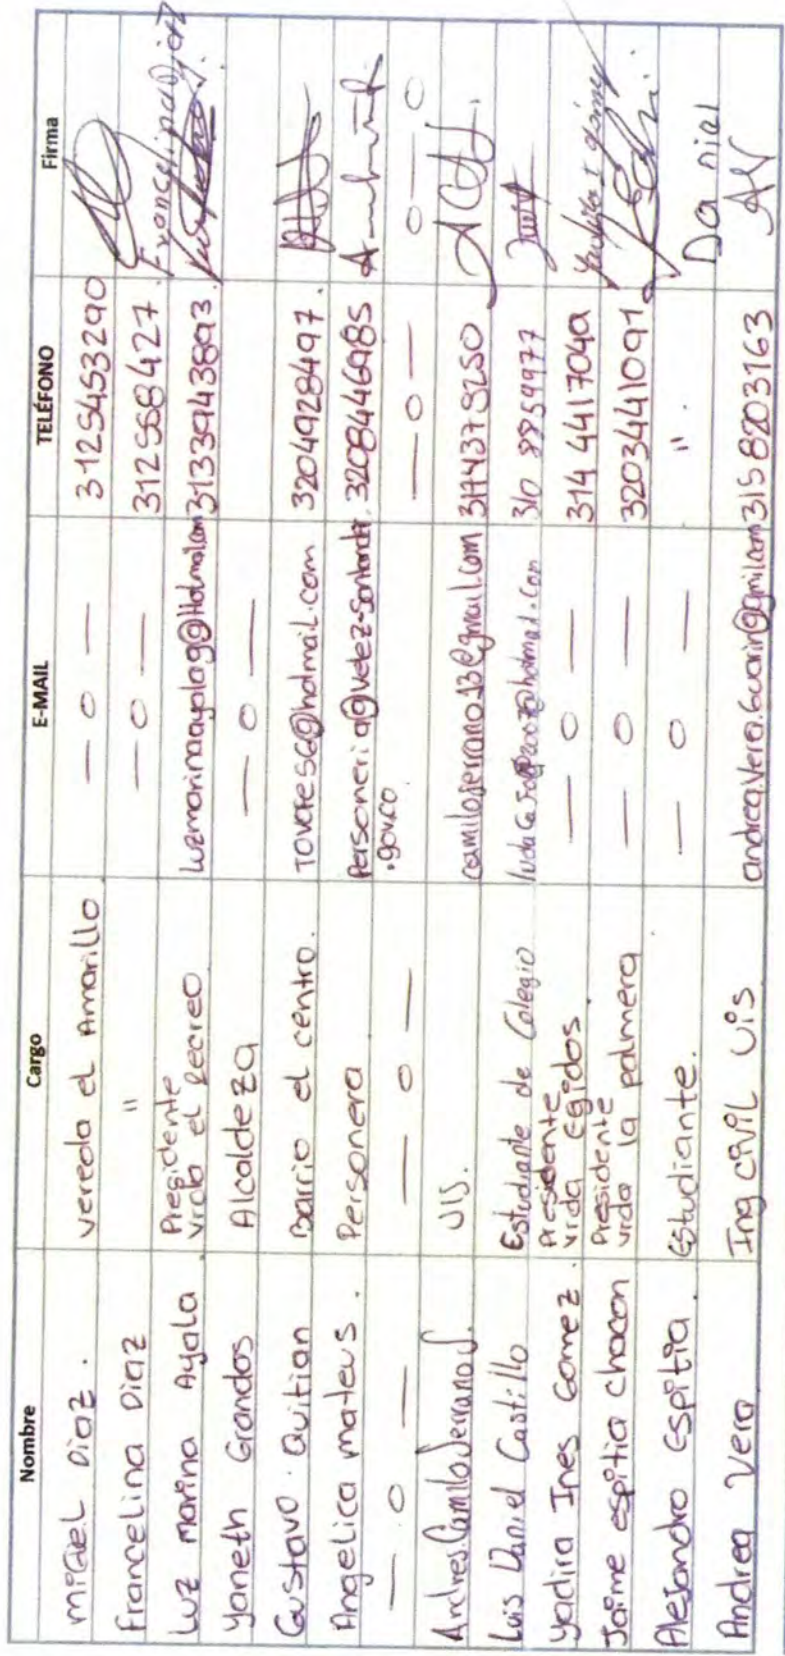 Nombre Cargo E-MAIL TELÉFONO Firma
miguel Diaz. vereda el Amarillo — o — 3125453290
Francelina Diaz " — o — 312 558 427. Francelina Diaz
Luz marina Ayala. Presidente vrda el recreo luzmarinaayala9@Hotmail.com 3133943893.
Yaneth Grandos Alcaldeza — o —
Gustavo. Quitian Barrio el centro. Tovares6@hotmail.com 3204928497.
Angelica mateus. Personera Personeria@velez-santander.gov.co 3208446985
— o — — o — — o — o — o
Andres Camilo Serrano J. UIS. camiloserrano13@gmail.com 3174379250 ACS.
Luis Daniel Castillo Estudiante de Colegio 310 8859977
Yadira Ines Gomez. Presidente vrda Egidos. — o — 314 4417049 Yadira I Gómez
Jaime espitia chacon Presidente vrda la palmera — o — 3203441091
Alejandro Espitia. Estudiante. — o — ". Daniel
Andrea Vera Ing civil Uis andrea.Vera.Guarin@gmil.com 315 8203163 AV